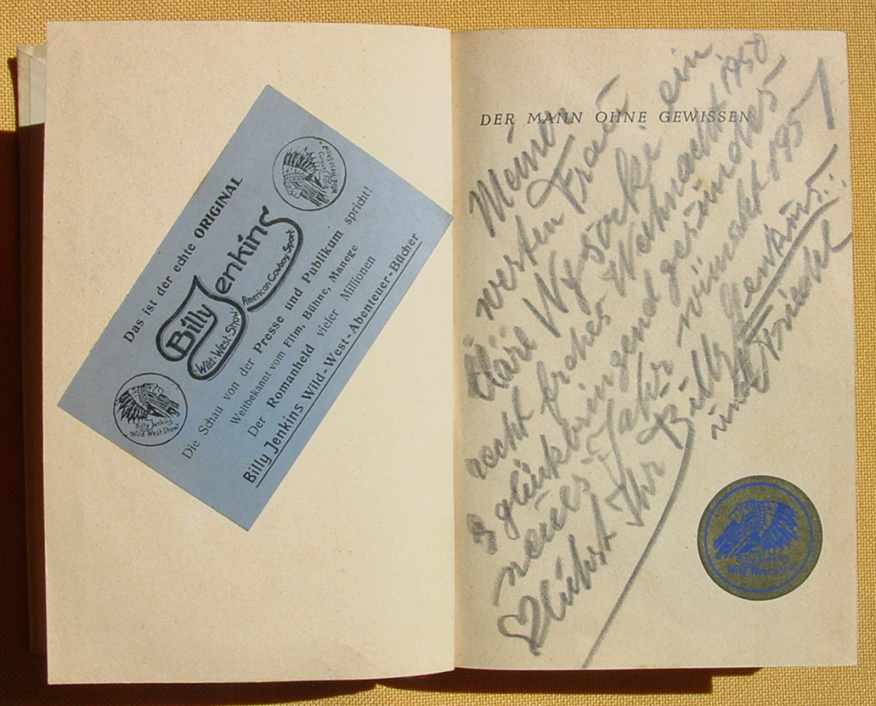 Das ist der echte ORIGINAL
Billy Jenkins
Wild-West-Show
American Cowboy Sport
Billy Jenkins
Wild West Show
Die Schau von der Presse und Publikum spricht!
Weltbekannt vom Film, Bühne, Manege
Der Romanheld vieler Millionen
Billy Jenkins Wild-West-Abenteuer-Bücher
DER MANN OHNE GEWISSEN
Meiner
werten Frau
Cläre Wysocki ein
recht frohes Weihnacht 1950
& glückbringend gesundes
neues Jahr wünscht 1951
herzlichst Ihr Billy Jenkins
und Friedel
Wild West Show